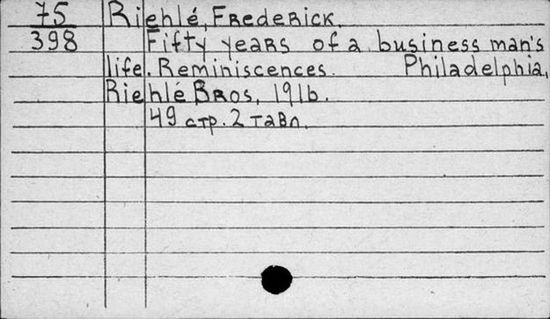 75 Riehlé, Frederick.
398 Fifty years of a business man's
life. Reminiscences. Philadelphia,
Riehlé Bros, 1916.
49 стр. 2 табл.